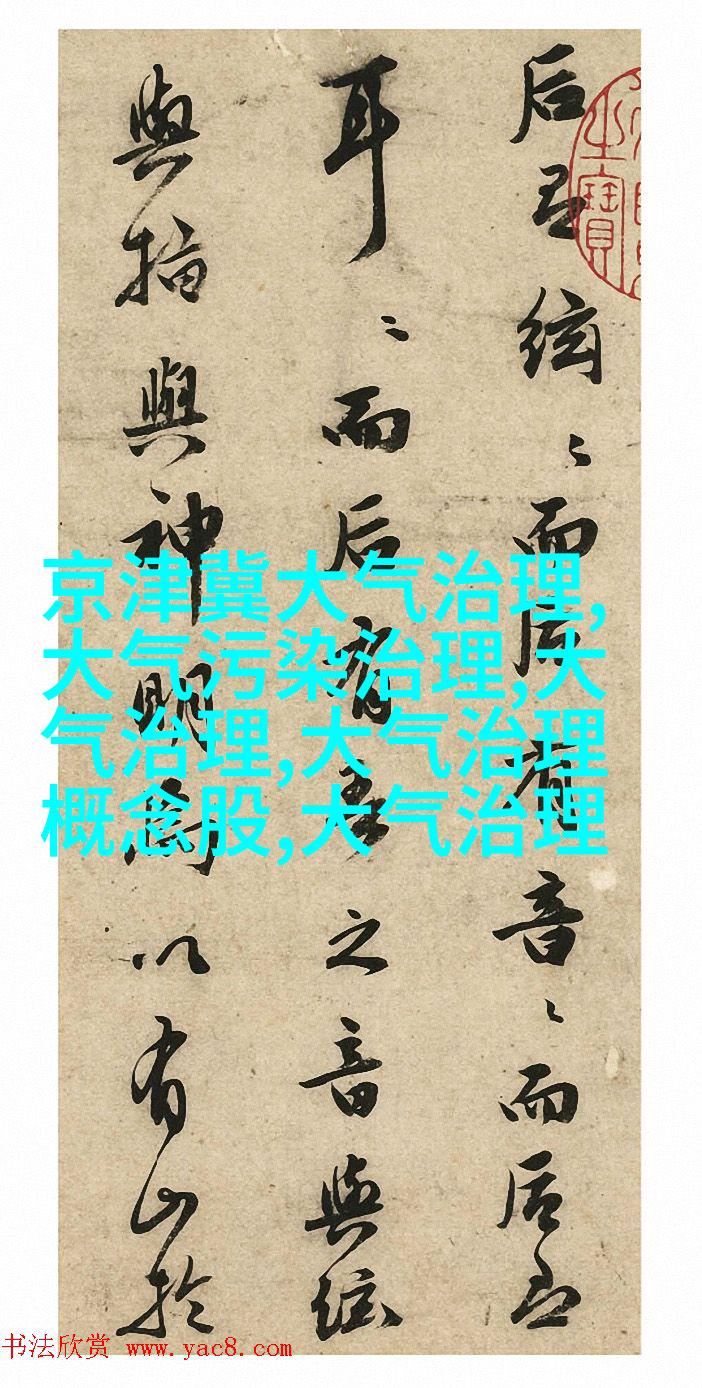 后有絃〻而后有音〻而后
耳〻而后有之音與絃
與指與神明為以有山於
之寶
京津冀大气治理,
大气污染治理,大
气治理,大气治理
概念股,大气治理
书法欣赏 www.yac8.com